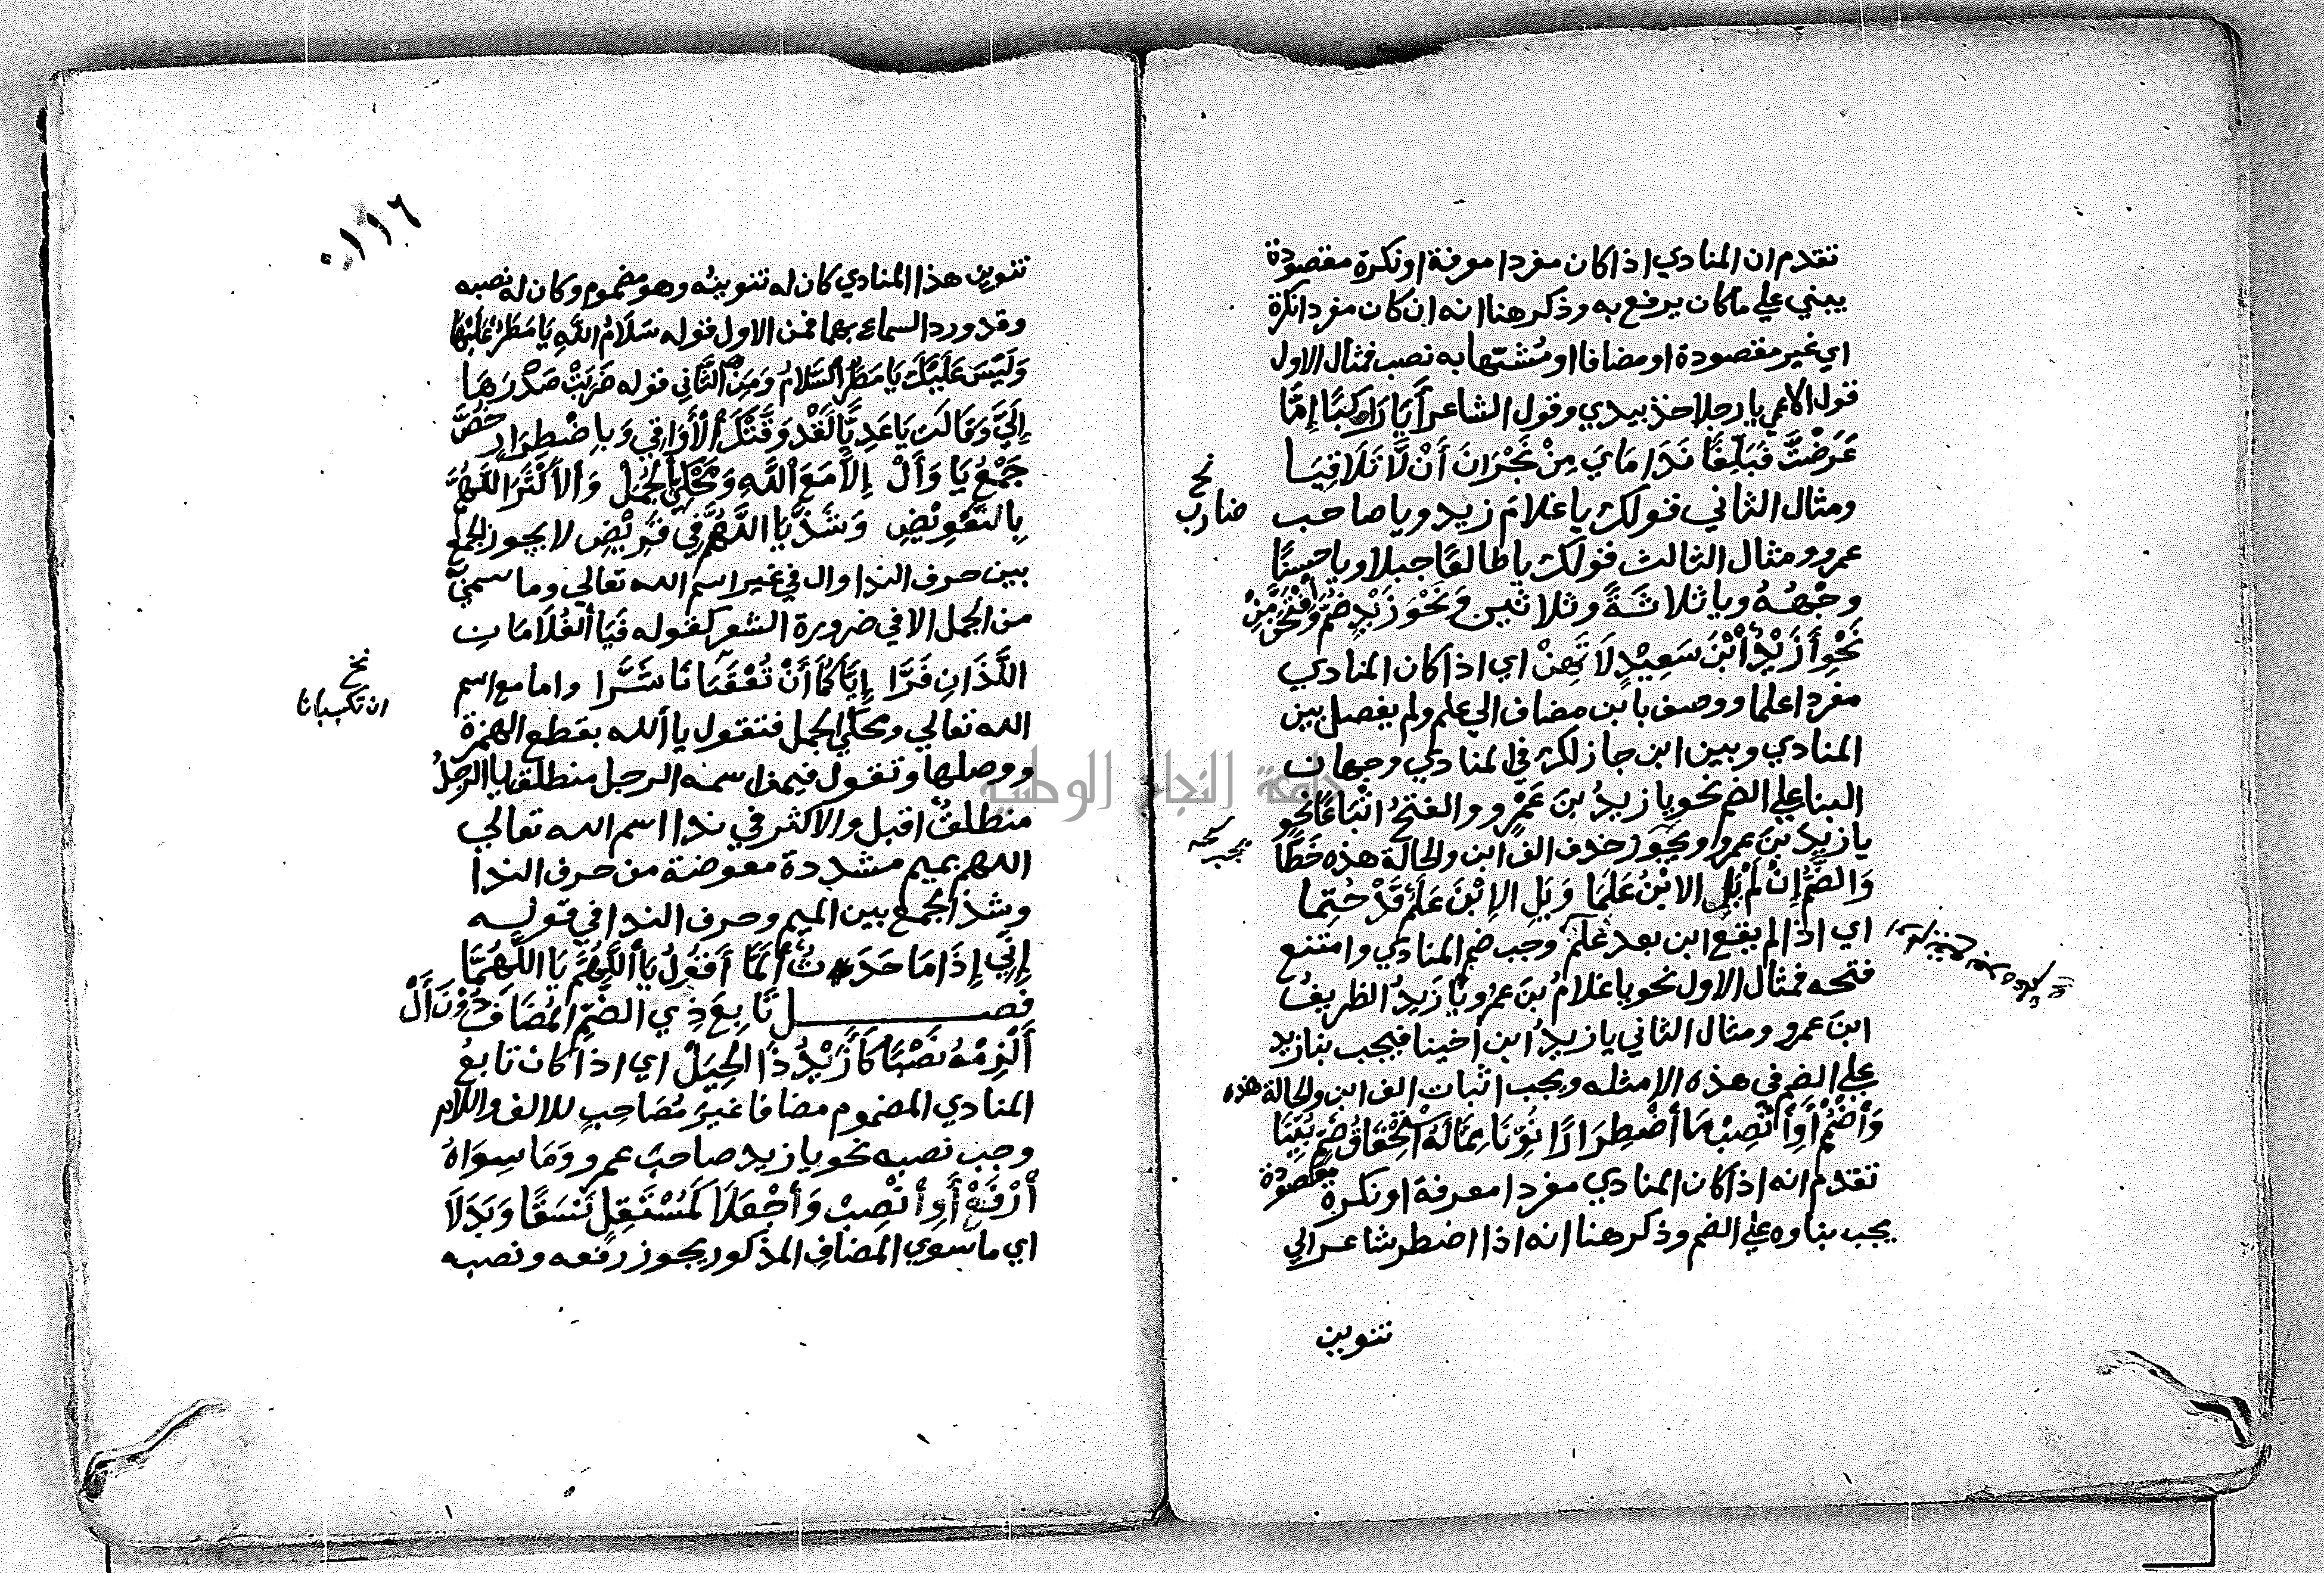 تقدم ان المنادي اذا كان مفردا معرفة او نكرة مقصودة
يبني علي ما كان يرفع به وذكر هنا انه ان كان مفردا نكرة
اي غير مقصودة او مضافا او مُشبّها به نصب فمثال الاول
قول الاعمي يا رجلا خذ بيدي وقول الشاعر أَيَا رَاكِبًا إِمَّا
عَرَضْتَ فَبَلِّغًا نَدَامَايَ مِنْ نَجْرَانَ أَنْ لَّا تَلَاقِيَا
ومثال الثاني قولك يا غلامَ زيد ويا صاحب
نخ
ضارب
عمرو ومثال الثالث قولك يا طالعًا جبلا ويا حسنًا
وجْهُهُ ويا ثلاثةً وثلاثين وَنَحْوَ زَيْدٍ ضُمَّ وَافْتَحَنَّ مِنْ
نَحْوِ أَزَيْدُ ابْنَ سَعِيْدٍ لَا تَهِنْ اي اذا كان المنادي
مفردا علما ووصف بابن مضاف الي علم ولم يفصل بين
المنادي وبين ابن جاز لك في المنادي وجهان
البنا علي الضم نحو يا زيدُ بنَ عَمْرٍو والفتحُ اتْبَاعًا نحو
يا زيدَ بنَ عمرو ويجوز حذف الف ابن والحالة هذه خَطًّا
يجب نسخه
وَالضَّمُّ إِنْ لَمْ يَلِ الابْنُ عَلَمَا وَيَلِ الإِبْنَ عَلَمٌ قَدْ حُتِمَا
اي اذا لم يقع ابن بعد عَلَم وجب ضم المنادي وامتنع
فتحه فمثال الاول نحو يا غلامُ بنَ عمرٍو ويا زيدُ الظريفُ
ابنَ عمرو ومثال الثاني يا زيدُ ابن اخينا فيجب بنا زيد
علي الضم في هذه الامثله ويجب اثبات الف ابن والحالة هذه
وَاضْمُمْ أَوِ انْصِبْ مَا اضْطِرَارًا نُوِّنَا مِمَّا لَهُ اسْتِحْقَاقُ ضَمٍّ بُيِّنَا
تقدم انه اذا كان المنادي مفردا معرفة او نكرة مقصودة
يجب بناوه علي الضم وذكر هنا انه اذا اضطر شاعر الي
تنوين
١١٦
تنوين هذا المنادي كان له تنوينُه وهو مضموم وكان له نصبه
وقد ورد السماع بهما فمن الاول قوله سَلَامُ اللَّهِ يَا مَطَرٌ عَلَيْهَا
وَلَيْسَ عَلَيْكَ يَا مَطَرُ السَّلَامُ وَمِنَ الثَّانِي قوله ضَرَبَتْ صَدْرَهَا
إِلَيَّ وَقَالَتْ يَا عَدِيًّا لَقَدْ وَقَتْكَ الْأَوَاقِي وَبِاضْطِرَارٍ خُصَّ
جَمْعُ يَا وَأَلْ إِلَّا مَعَ اللَّهِ وَمَحْكِيِّ الْجُمَلْ وَالأَكْثَرُ اللَّهُمَّ
بِالتَّعْوِيْضِ وَشَذَّ يَا اللَّهُمَّ فِي قَرِيْضِ لا يجوز الجمع
بين حرف الندا وال في غير اسم الله تعالي وما سمي
من الجمل الا في ضرورة الشعر كقوله فَيَا الْغُلَامَانِ
اللَّذَانِ فَرَّا إِيَّاكُمَا أَنْ تُعْقِبَانَا شَرَّا واما مع اسم
نخ
ان تكسبانا
الله تعالي ومحكي الجمل فتقول يا ألله بقطع الهمزة
ووصلها وتقول فيمن اسمه الرجل منطلق يا الرجلُ
منطلقٌ اقبل والاكثر في ندا اسم الله تعالي
اللهم بميم مشددة معوضة من حرف الندا
وشذ الجمع بين الميم وحرف الندا في قوله
إِنِّي إِذَا مَا حَدَثٌ أَلَمَّا أَقُولُ يَا أللَّهُمَّ يَا اللَّهُمَّا
فصل تَابِعَ ذِي الضَّمِ الْمُضَافَ دُوْنَ أَلْ
أَلْزِمْهُ نَصْبًا كَأَزَيْدُ ذَا الْحِيَلْ اي اذا كان تابعُ
المنادي المضموم مضافا غيرَ مُصَاحِبٍ للالف واللام
وجب نصبه نحو يا زيد صاحبَ عمرو وَمَا سِوَاهُ
ارْفَعْ أَوِ انْصِبْ وَاجْعَلَا كَمُسْتَقِلٍّ نَسَقًا وَبَدَلَا
اي ما سوي المضاف المذكور يجوز رفعه ونصبه